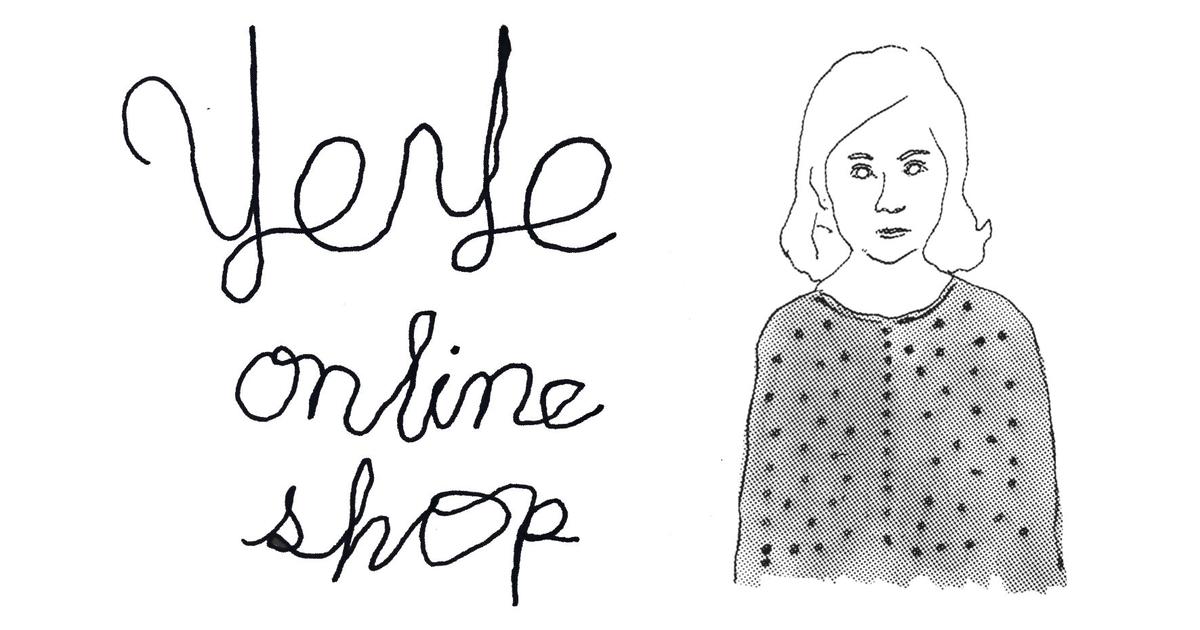 YeYe
online
shop